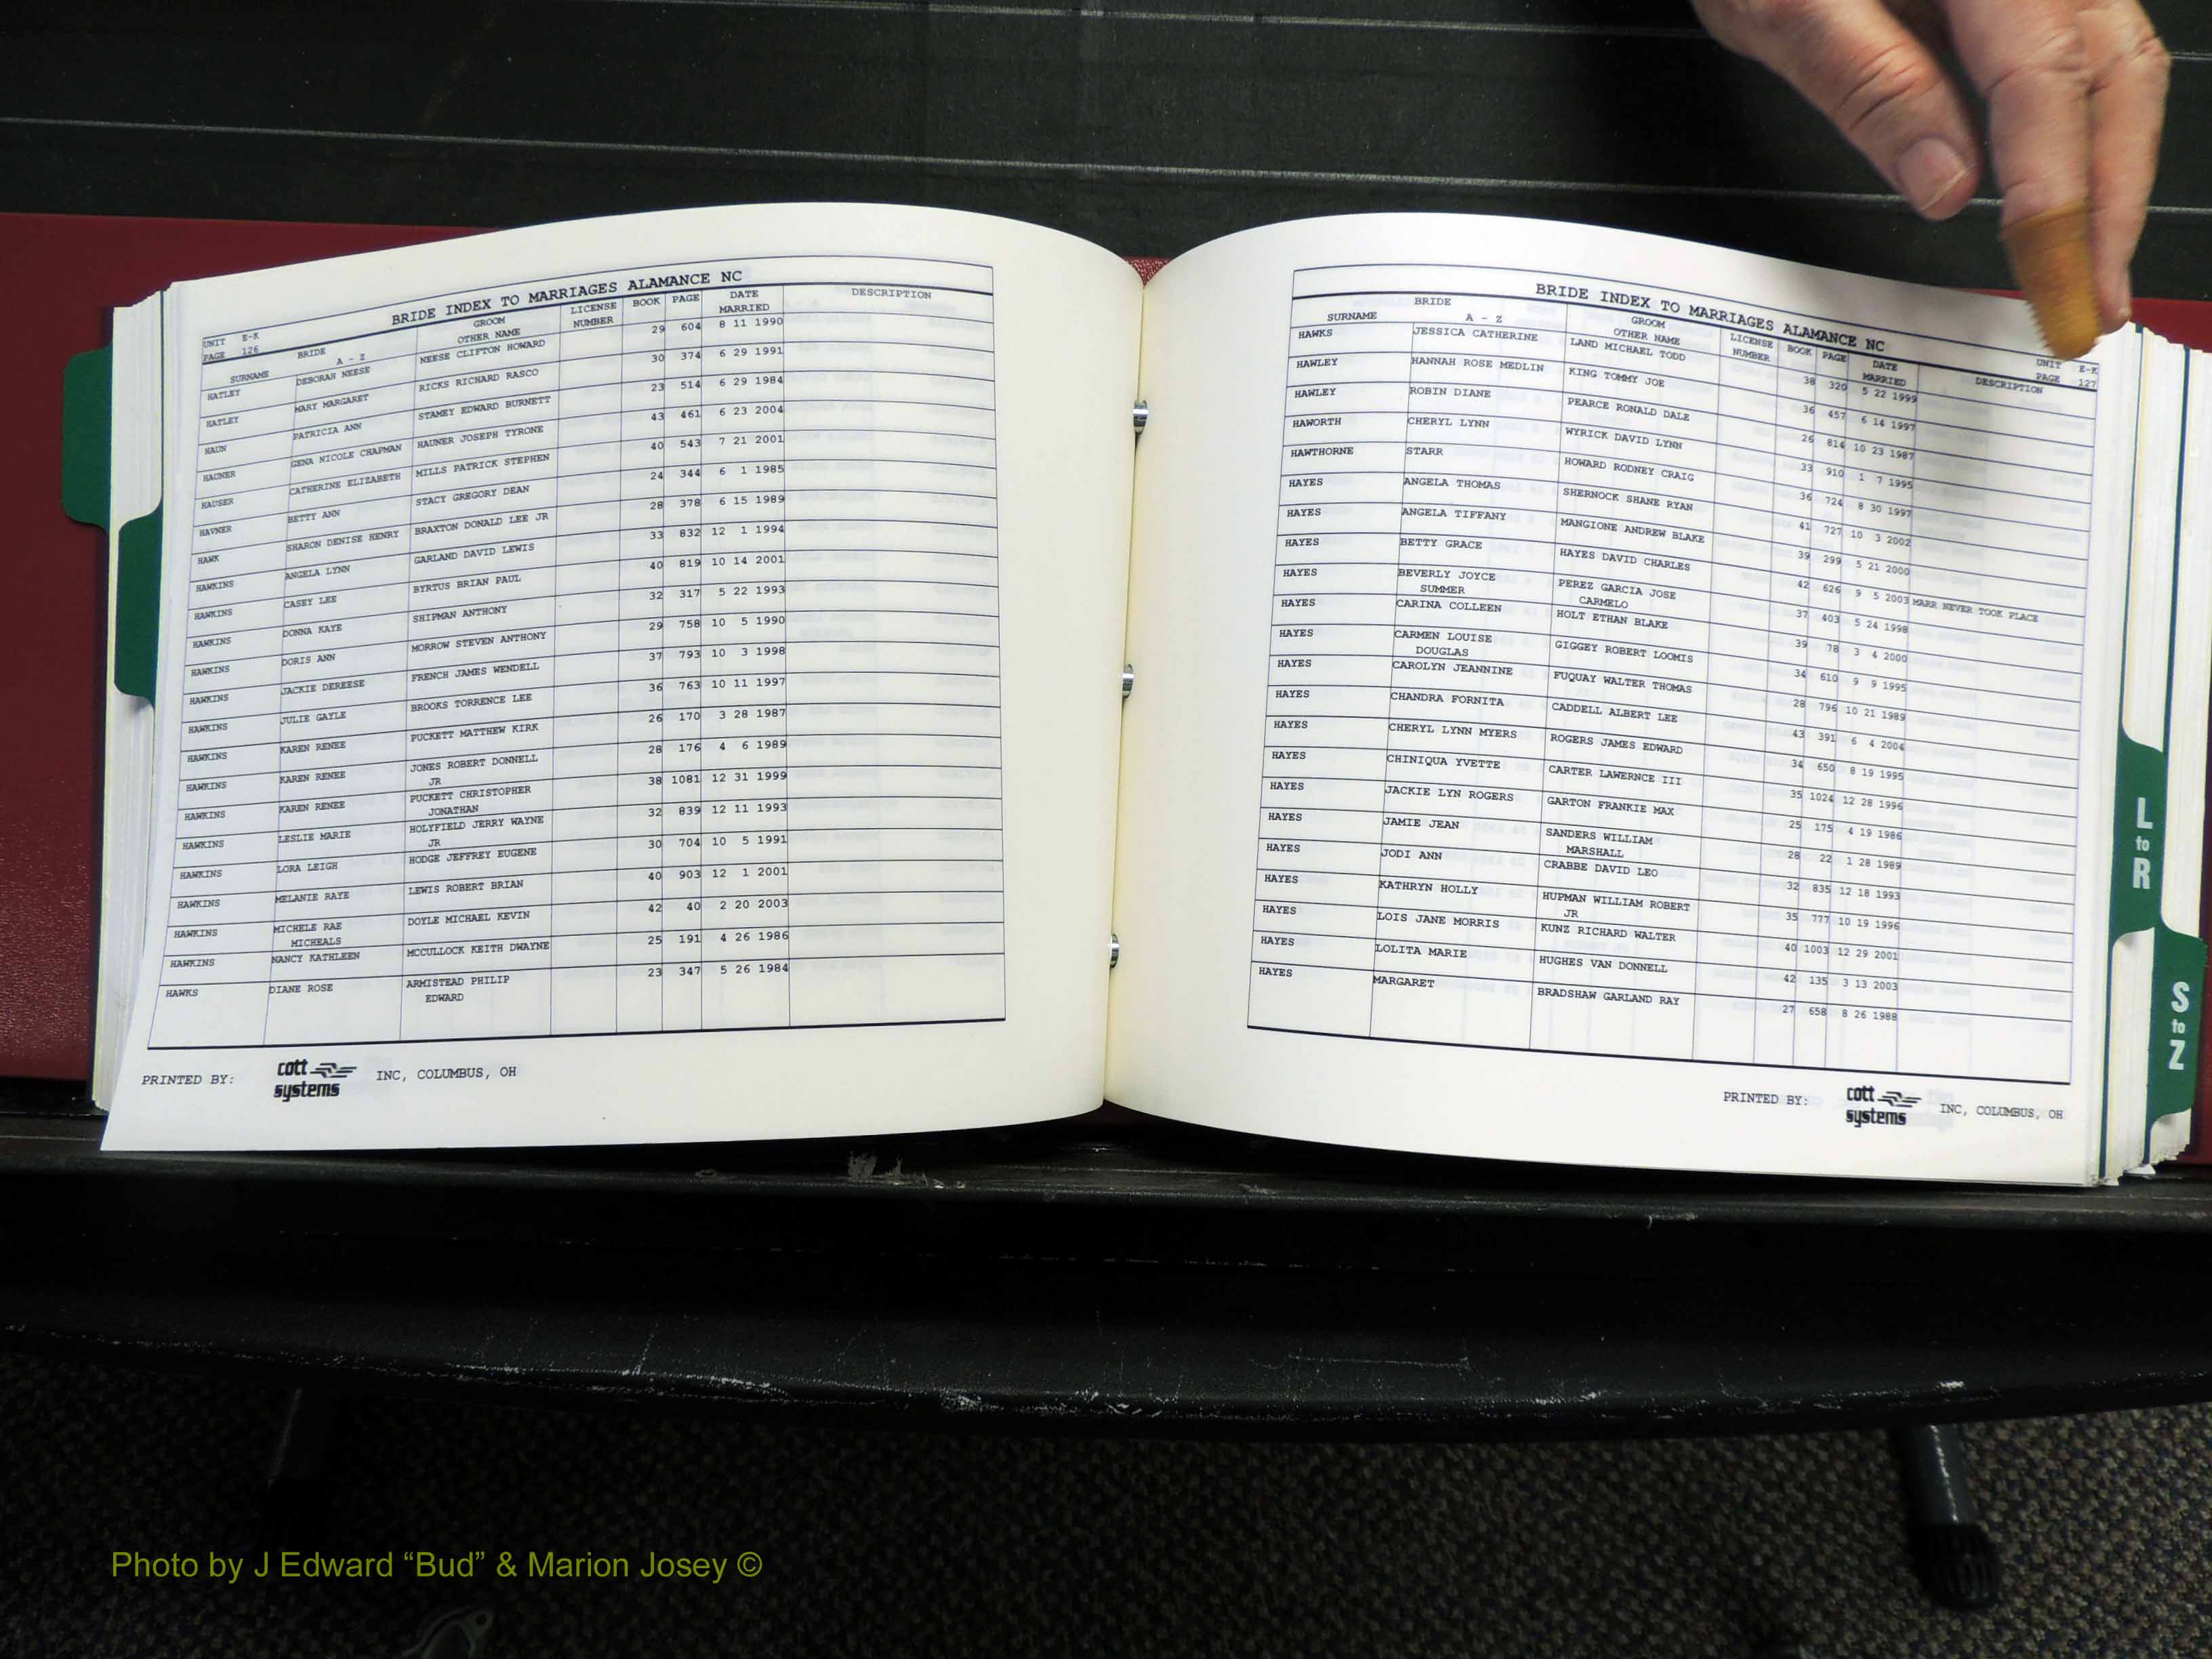 BRIDE INDEX TO MARRIAGES ALAMANCE NC
UNIT E-K
PAGE 126
BRIDE GROOM LICENSE BOOK PAGE DATE DESCRIPTION
SURNAME A - Z OTHER NAME NUMBER MARRIED
HATLEY DEBORAH NEESE NEESE CLIFTON HOWARD 29 604 8 11 1990
HATLEY MARY MARGARET RICKS RICHARD RASCO 30 374 6 29 1991
HAUN PATRICIA ANN STAMEY EDWARD BURNETT 23 514 6 29 1984
HAUNER GENA NICOLE CHAPMAN HAUNER JOSEPH TYRONE 43 461 6 23 2004
HAUSER CATHERINE ELIZABETH MILLS PATRICK STEPHEN 40 543 7 21 2001
HAVNER BETTY ANN STACY GREGORY DEAN 24 344 6 1 1985
HAWK SHARON DENISE HENRY BRAXTON DONALD LEE JR 28 378 6 15 1989
HAWKINS ANGELA LYNN GARLAND DAVID LEWIS 33 832 12 1 1994
HAWKINS CASEY LEE BYRTUS BRIAN PAUL 40 819 10 14 2001
HAWKINS DONNA KAYE SHIPMAN ANTHONY 32 317 5 22 1993
HAWKINS DORIS ANN MORROW STEVEN ANTHONY 29 758 10 5 1990
HAWKINS JACKIE DEREESE FRENCH JAMES WENDELL 37 793 10 3 1998
HAWKINS JULIE GAYLE BROOKS TORRENCE LEE 36 763 10 11 1997
HAWKINS KAREN RENEE PUCKETT MATTHEW KIRK 26 170 3 28 1987
HAWKINS KAREN RENEE JONES ROBERT DONNELL 28 176 4 6 1989
JR
HAWKINS KAREN RENEE PUCKETT CHRISTOPHER 38 1081 12 31 1999
JONATHAN
HAWKINS LESLIE MARIE HOLYFIELD JERRY WAYNE 32 839 12 11 1993
JR
HAWKINS LORA LEIGH HODGE JEFFREY EUGENE 30 704 10 5 1991
HAWKINS MELANIE RAYE LEWIS ROBERT BRIAN 40 903 12 1 2001
HAWKINS MICHELE RAE DOYLE MICHAEL KEVIN 42 40 2 20 2003
MICHEALS
HAWKINS NANCY KATHLEEN MCCULLOCK KEITH DWAYNE 25 191 4 26 1986
HAWKS DIANE ROSE ARMISTEAD PHILIP 23 347 5 26 1984
EDWARD
PRINTED BY: cott systems INC, COLUMBUS, OH
BRIDE INDEX TO MARRIAGES ALAMANCE NC
UNIT E-K
PAGE 127
BRIDE GROOM LICENSE BOOK PAGE DATE DESCRIPTION
SURNAME A - Z OTHER NAME NUMBER MARRIED
HAWKS JESSICA CATHERINE LAND MICHAEL TODD 38 320 5 22 1999
HAWLEY HANNAH ROSE MEDLIN KING TOMMY JOE 36 457 6 14 1997
HAWLEY ROBIN DIANE PEARCE RONALD DALE 26 814 10 23 1987
HAWORTH CHERYL LYNN WYRICK DAVID LYNN 33 910 1 7 1995
HAWTHORNE STARR HOWARD RODNEY CRAIG 36 724 8 30 1997
HAYES ANGELA THOMAS SHERNOCK SHANE RYAN 41 727 10 3 2002
HAYES ANGELA TIFFANY MANGIONE ANDREW BLAKE 39 299 5 21 2000
HAYES BETTY GRACE HAYES DAVID CHARLES 42 626 9 5 2003 MARR NEVER TOOK PLACE
HAYES BEVERLY JOYCE PEREZ GARCIA JOSE 37 403 5 24 1998
SUMMER CARMELO
HAYES CARINA COLLEEN HOLT ETHAN BLAKE 39 78 3 4 2000
HAYES CARMEN LOUISE GIGGEY ROBERT LOOMIS 34 610 9 9 1995
DOUGLAS
HAYES CAROLYN JEANNINE FUQUAY WALTER THOMAS 28 796 10 21 1989
HAYES CHANDRA FORNITA CADDELL ALBERT LEE 43 391 6 4 2004
HAYES CHERYL LYNN MYERS ROGERS JAMES EDWARD 34 650 8 19 1995
HAYES CHINIQUA YVETTE CARTER LAWERNCE III 35 1024 12 28 1996
HAYES JACKIE LYN ROGERS GARTON FRANKIE MAX 25 175 4 19 1986
HAYES JAMIE JEAN SANDERS WILLIAM 28 22 1 28 1989
MARSHALL
HAYES JODI ANN CRABBE DAVID LEO 32 835 12 18 1993
HAYES KATHRYN HOLLY HUPMAN WILLIAM ROBERT 35 777 10 19 1996
JR
HAYES LOIS JANE MORRIS KUNZ RICHARD WALTER 40 1003 12 29 2001
HAYES LOLITA MARIE HUGHES VAN DONNELL 42 135 3 13 2003
HAYES MARGARET BRADSHAW GARLAND RAY 27 658 8 26 1988
PRINTED BY: cott systems INC, COLUMBUS, OH
L to R
S to Z
Photo by J Edward “Bud” & Marion Josey ©